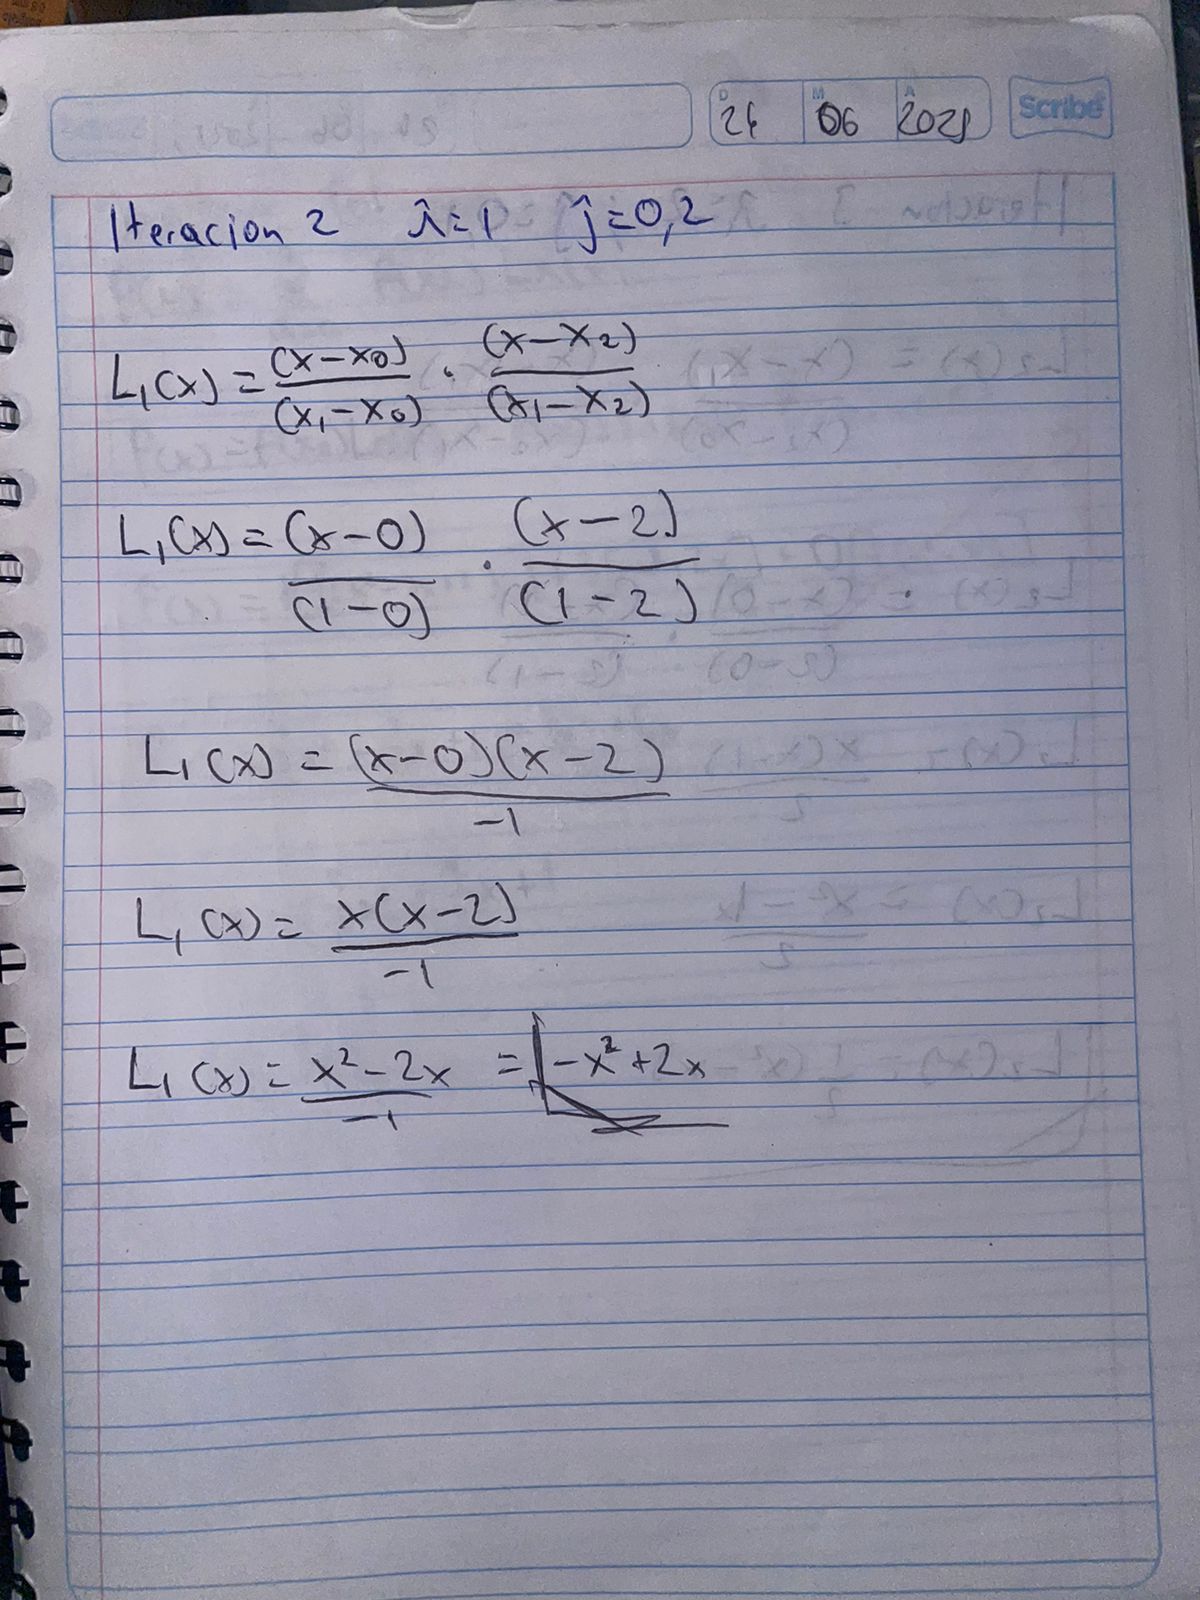 D M A
26 06 2025 Scribe
Iteracion 2 i=1 j=0,2
L₁(x) = (x-x₀)/(x₁-x₀) · (x-x₂)/(x₁-x₂)
L₁(x) = (x-0)/(1-0) · (x-2)/(1-2)
L₁(x) = (x-0)(x-2)/-1
L₁(x) = x(x-2)/-1
L₁(x) = x²-2x/-1 = -x²+2x